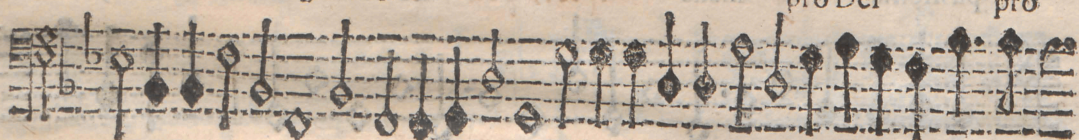 pro Dei pro